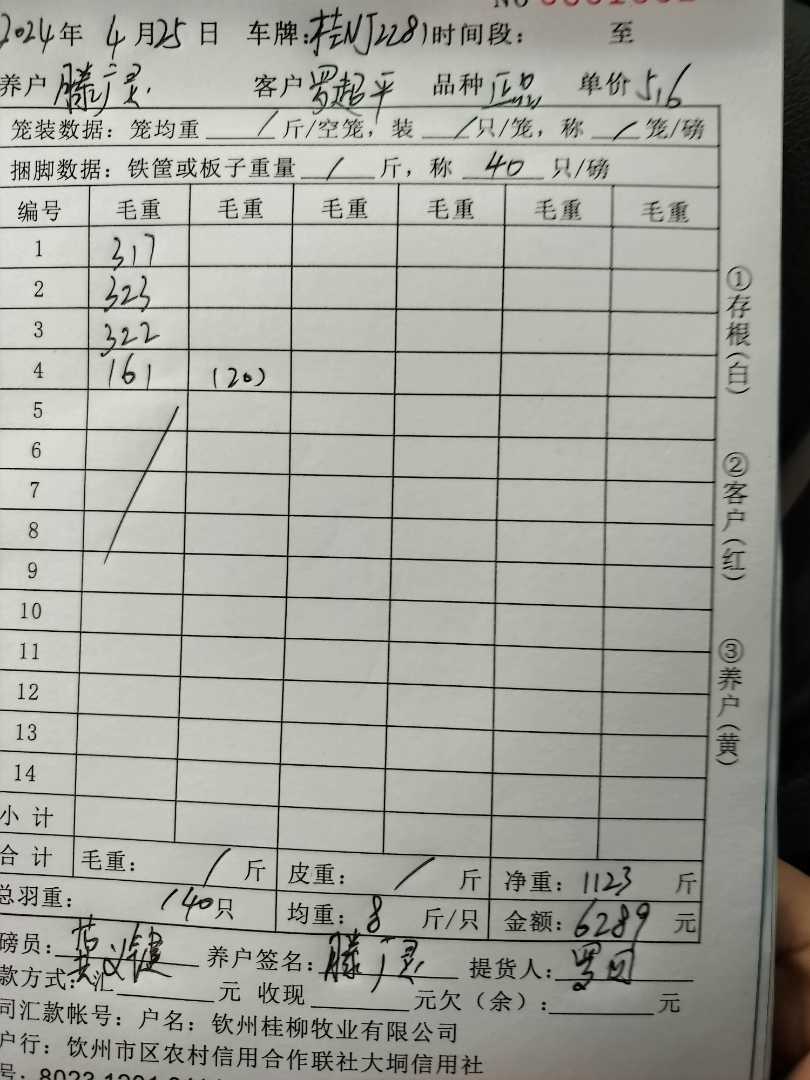 2024年 4月25日 车牌:桂NJ2281时间段: 至
养户 滕广灵 客户 罗超平 品种 正品 单价 5.6
笼装数据: 笼均重 / 斤/空笼, 装 / 只/笼, 称 / 笼/磅
捆脚数据: 铁筐或板子重量 / 斤, 称 40 只/磅
编号 毛重 毛重 毛重 毛重 毛重 毛重
1 317
2 323
3 322
4 161 (20)
5
6
7
8
9
10
11
12
13
14
小 计
合 计 毛重: / 斤 皮重: / 斤 净重: 1123 斤
总羽重: 140只 均重: 8 斤/只 金额: 6289 元
磅员: 养户签名: 滕广灵 提货人: 罗
款方式: 汇 元 收现 元欠(余): 元
司汇款帐号: 户名: 钦州桂柳牧业有限公司
户行: 钦州市区农村信用合作联社大垌信用社
①存根(白)
②客户(红)
③养户(黄)